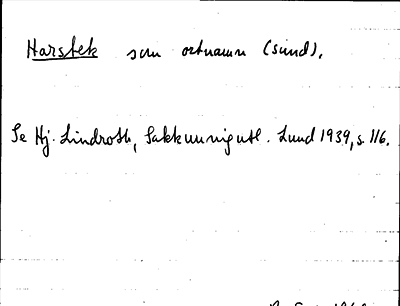 Harstek som ortnamn (sund).
Se Hj. Lindroth, Sakkunnigutl. Lund 1939, s. 116.